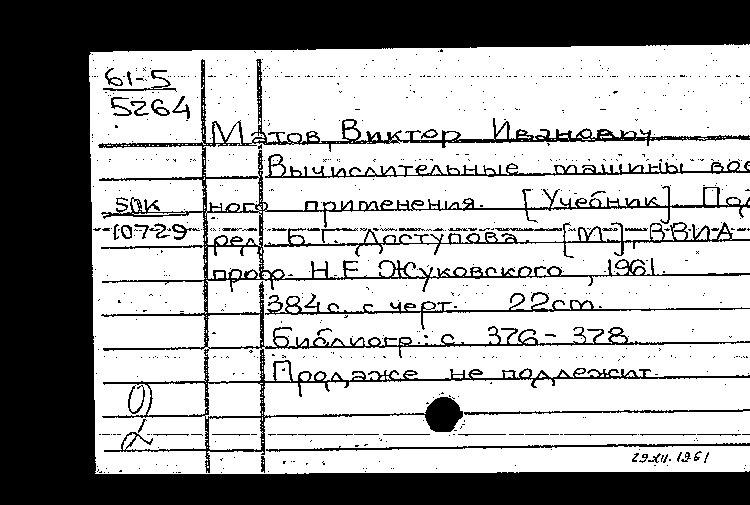 61-5
5264
Матов, Виктор Иванович
Вычислительные машины вое
50К
ного применения. [Учебник]. Под
10729
ред. Б.Г. Доступова. [М.], ВВИА
проф. Н.Е. Жуковского, 1961.
384 с. с черт. 22 cm.
Библиогр.: с. 376-378
Продаже не подлежит
2
29.XII.1961